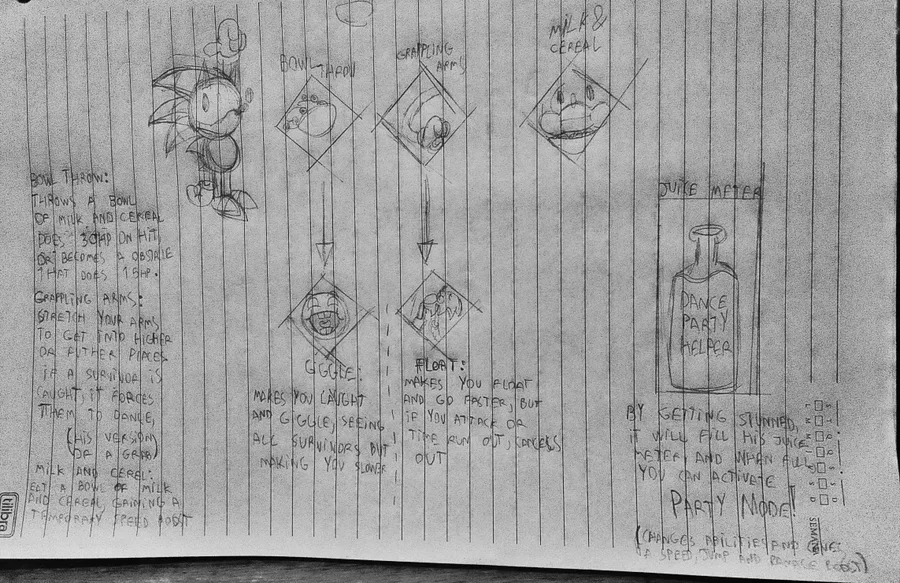 BOWL THROW
GRAPPLING
ARMS
MILK &
CEREAL
BOWL THROW:
THROWS A BOWL
OF MILK AND CEREAL
DOES 30HP ON HIT,
OR BECOMES A OBSTCLE
THAT DOES 15HP.
GRAPPLING ARMS:
STRETCH YOUR ARMS
TO GET INTO HIGHER
OR FUTHER PLACES
IF A SURVIVOR IS
CAUGHT, IT FORCES
THEM TO DANCE,
(HIS VERSION
OF A GRAB)
MILK AND CEREL:
EET A BOWL OF MILK
AND CEREAL, GAINING A
TEMPORARY SPEED BOOST
GIGGLE:
MAKES YOU LAUGHT
AND GIGGLE, SEEING
ALL SURVIVORS BUT
MAKING YOU SLOWER
FLOAT:
MAKES YOU FLOAT
AND GO FASTER, BUT
IF YOU ATTACK OR
TIME RUN OUT, CANCELS
OUT
JUICE METER
DANCE
PARTY
HELPER
BY GETTING STUNNED,
IT WILL FILL HIS JUICE
METER, AND WHEN FULL
YOU CAN ACTIVATE
PARTY MODE!
(CHANGES ABILITIES AND GIVE
A SPEED, JUMP AND DAMAGE BOOST)
tilibra